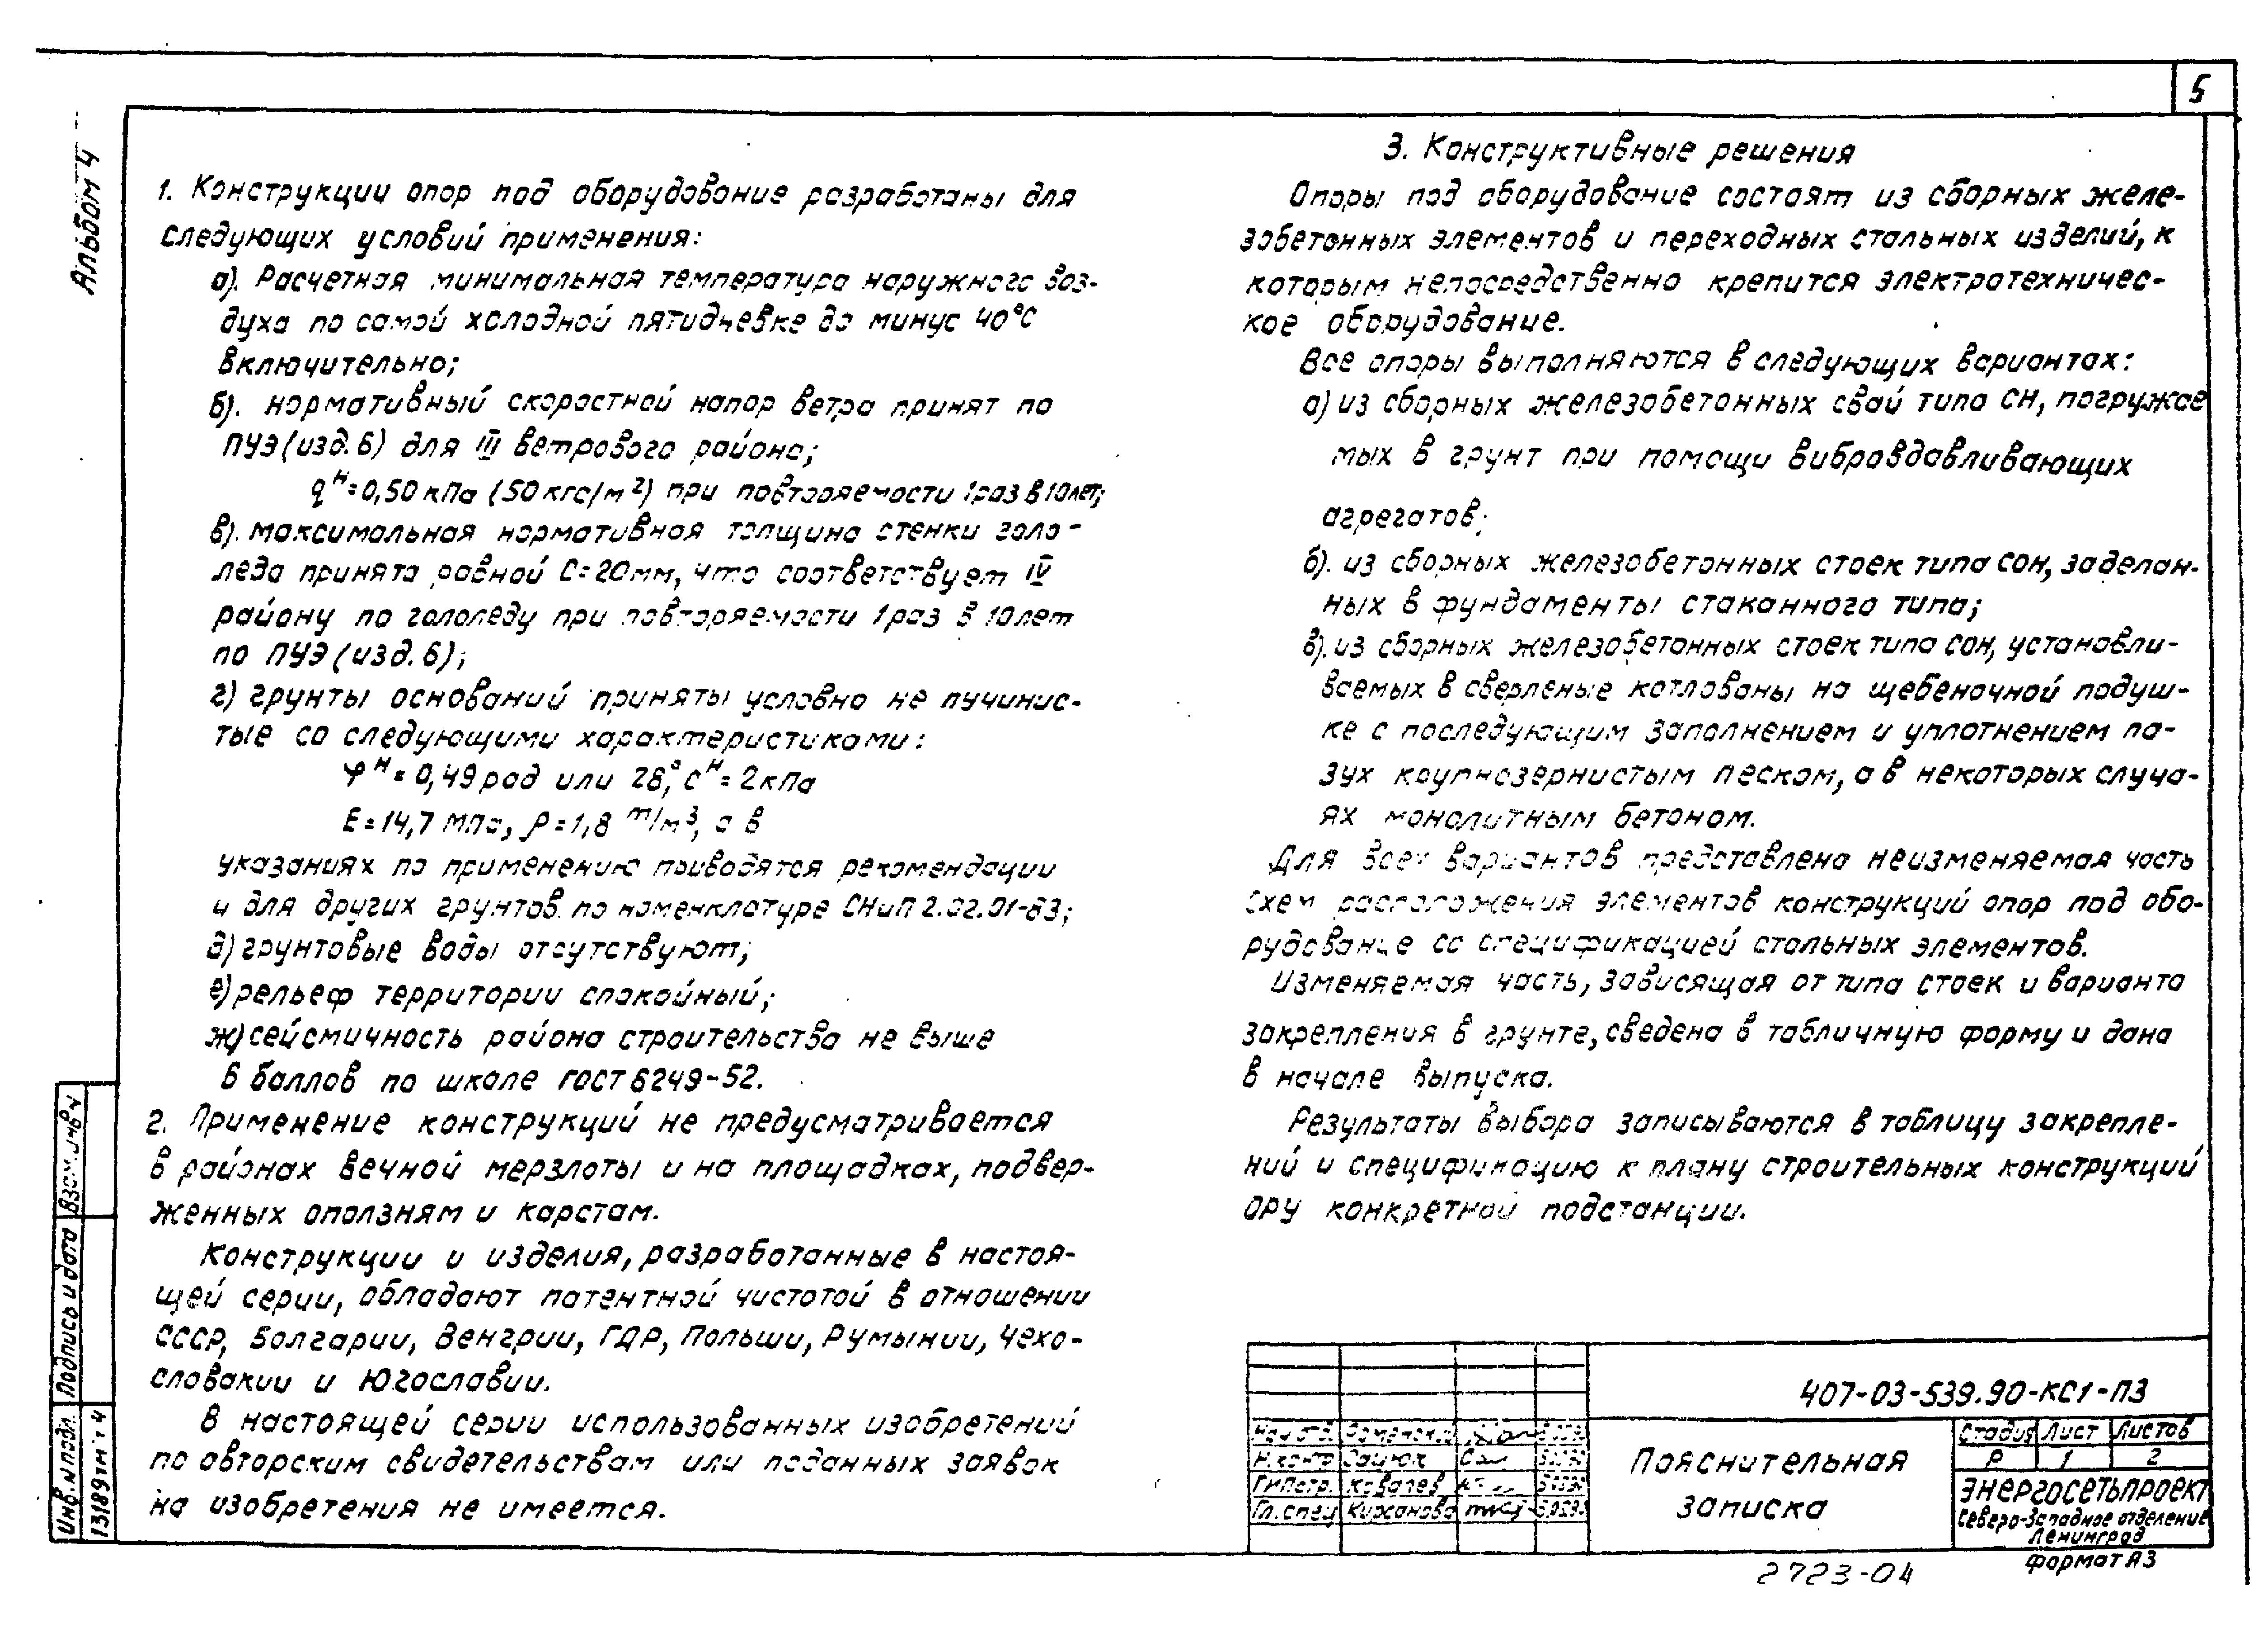 5
Альбом 4
1. Конструкции опор под оборудование разработаны для
следующих условий применения:
а). Расчетная минимальная температура наружного воз-
духа по самой холодной пятидневке до минус 40°С
включительно;
б). нормативный скоростной напор ветра принят по
ПУЭ (изд. 6) для III ветрового района;
qᴴ=0,50 кПа (50 кгс/м²) при повторяемости 1 раз в 10 лет;
в). максимальная нормативная толщина стенки голо-
леда принята равной С=20мм, что соответствует IV
району по гололеду при повторяемости 1 раз в 10 лет
по ПУЭ (изд. 6);
г) грунты оснований приняты условно не пучинис-
тые со следующими характеристиками:
φᴴ = 0,49 рад или 28°, Сᴴ = 2 кПа
Е = 14,7 МПа, ρ = 1,8 т/м³, а в
указаниях по применению приводятся рекомендации
и для других грунтов по номенклатуре СНиП 2.02.01-83;
д) грунтовые воды отсутствуют;
е) рельеф территории спокойный;
ж) сейсмичность района строительства не выше
6 баллов по шкале ГОСТ 6249-52.
2. Применение конструкций не предусматривается
в районах вечной мерзлоты и на площадках, подвер-
женных оползням и карстам.
Конструкции и изделия, разработанные в настоя-
щей серии, обладают патентной чистотой в отношении
СССР, Болгарии, Венгрии, ГДР, Польши, Румынии, Чехо-
словакии и Югославии.
В настоящей серии использованных изобретений
по авторским свидетельствам или поданных заявок
на изобретения не имеется.
3. Конструктивные решения
Опоры под оборудование состоят из сборных желе-
зобетонных элементов и переходных стальных изделий, к
которым непосредственно крепится электротехничес-
кое оборудование.
Все опоры выполняются в следующих вариантах:
а) из сборных железобетонных свай типа СН, погружае
мых в грунт при помощи вибровдавливающих
агрегатов;
б). из сборных железобетонных стоек типа СОН, заделан-
ных в фундаменты стаканного типа;
в). из сборных железобетонных стоек типа СОН, установли-
ваемых в сверленые котлованы на щебеночной подуш-
ке с последующим заполнением и уплотнением па-
зух крупнозернистым песком, а в некоторых случа-
ях монолитным бетоном.
Для всех вариантов представлена неизменяемая часть
схем расположения элементов конструкций опор под обо-
рудование со спецификацией стальных элементов.
Изменяемая часть, зависящая от типа стоек и варианта
закрепления в грунте, сведена в табличную форму и дана
в начале выпуска.
Результаты выбора записываются в таблицу закрепле-
ний и спецификацию к плану строительных конструкций
ОРУ конкретной подстанции.
407-03-539.90-КС1-ПЗ
Нач. отд.
Н.контр. Зацюк
ГИПстр. Ковалев
Гл. спец Кирсанова
Пояснительная
записка
Стадия Лист Листов
Р 1 2
ЭНЕРГОСЕТЬПРОЕКТ
Северо-Западное отделение
Ленинград
Формат А3
2723-04
Взам. инв. N
Подпись и дата
Инв. N подл.
13189тм-т4